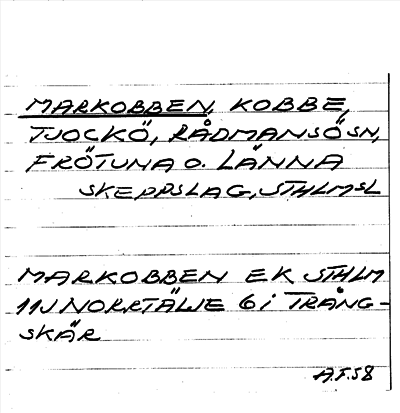 MARKOBBEN, KOBBE,
TJOCKÖ, RÅDMANSÖ SN,
FRÖTUNA O. LÄNNA
SKEPPSLAG, STHLMSL
MARKOBBEN EK STHLM
11J NORRTÄLJE 6 i TRÅNG-
SKÄR
A.F.58